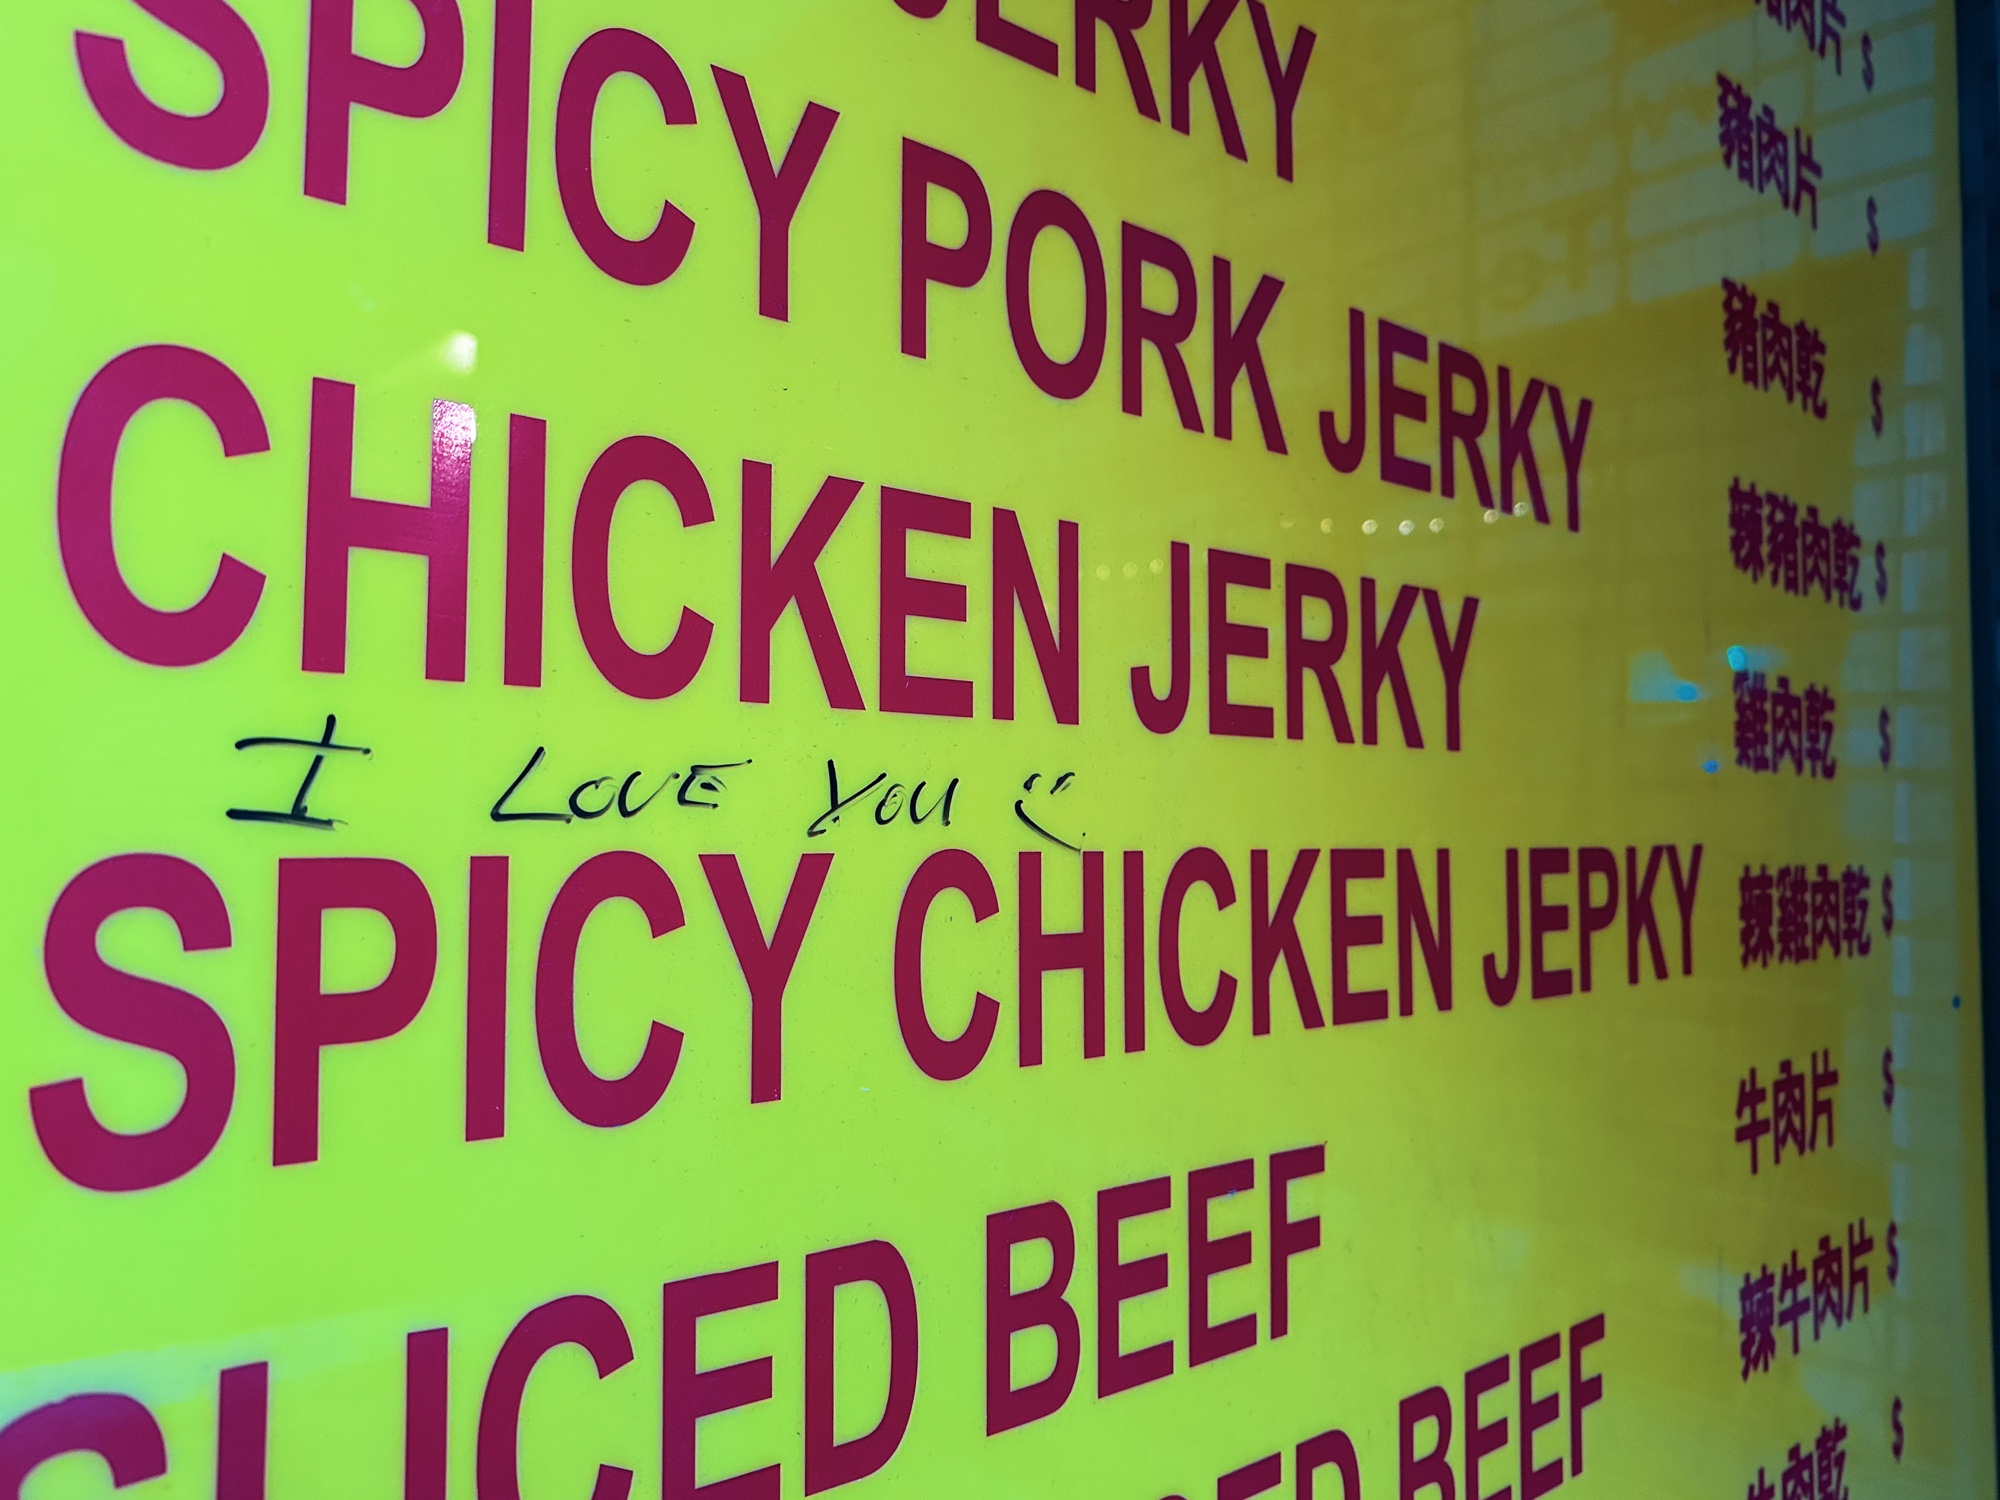 JERKY 豬肉片 $
SPICY PORK JERKY 豬肉乾 $
CHICKEN JERKY 辣豬肉乾 $
I LOVE YOU
雞肉乾 $
SPICY CHICKEN JEPKY 辣雞肉乾 $
SLICED BEEF 牛肉片 $
BEEF 辣牛肉片 $
牛肉乾 $